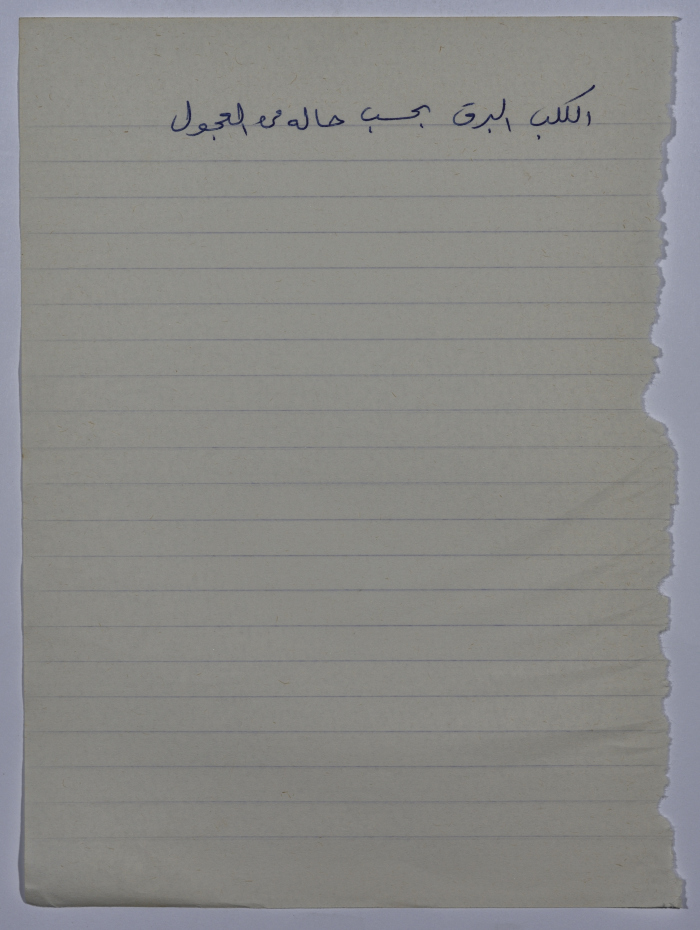 الكلب البرق بحسب حاله من العجول